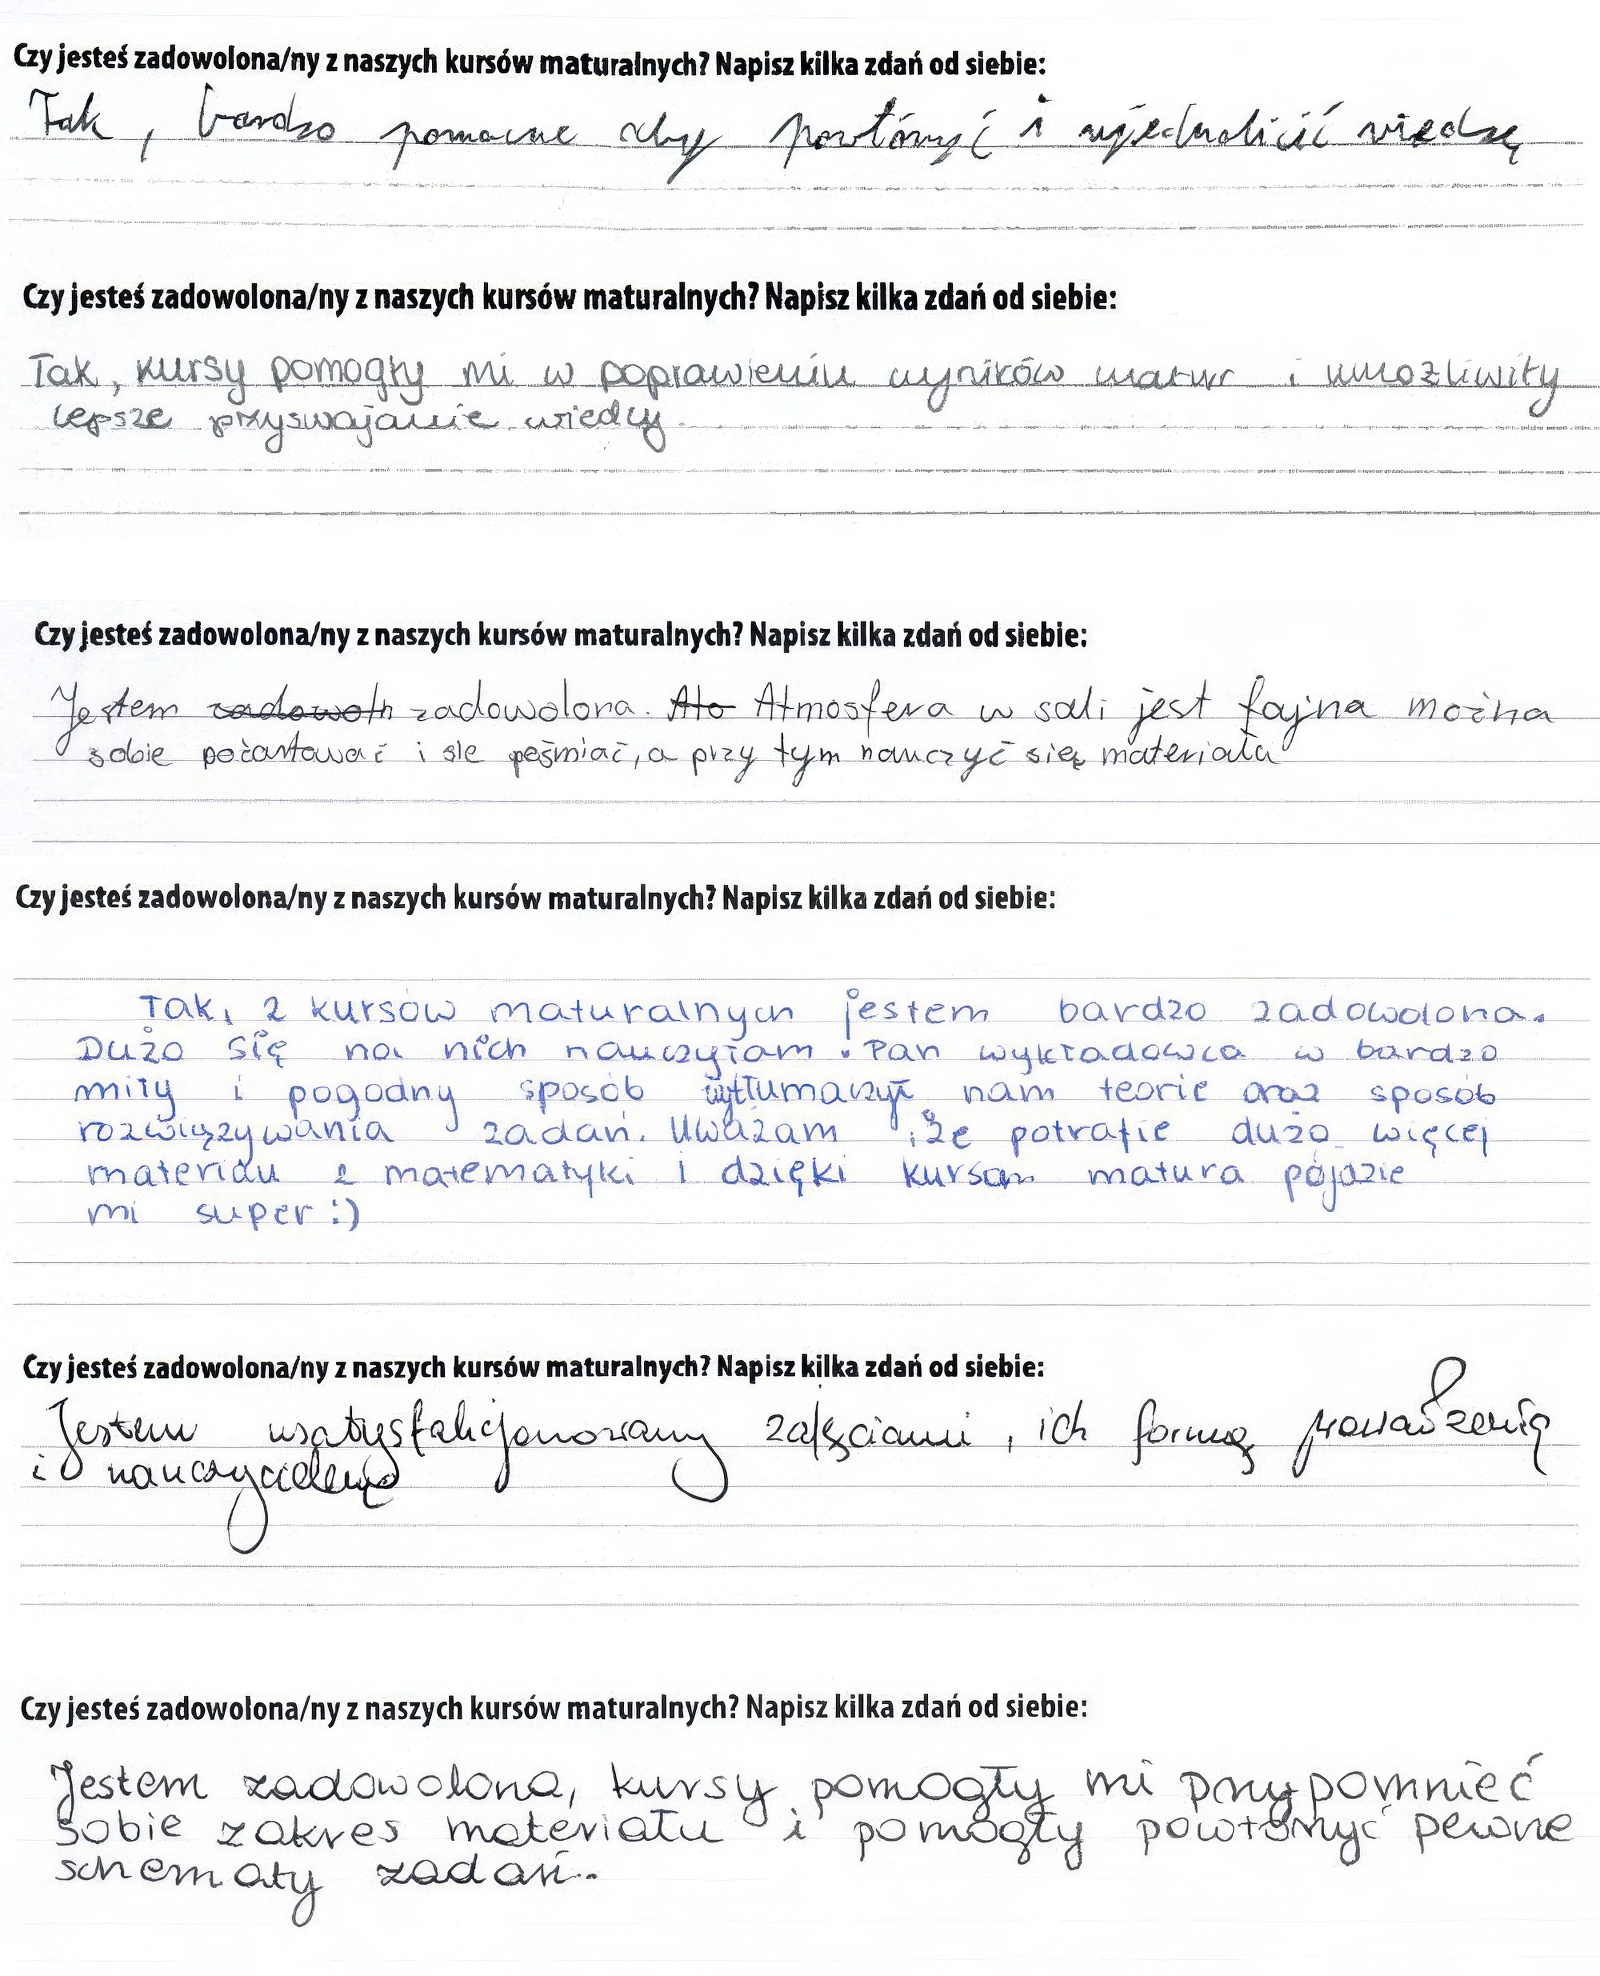 Czy jesteś zadowolona/ny z naszych kursów maturalnych? Napisz kilka zdań od siebie:
Tak, bardzo pomocne aby powtórzyć i ujednolicić wiedzę
Czy jesteś zadowolona/ny z naszych kursów maturalnych? Napisz kilka zdań od siebie:
Tak, kursy pomogły mi w poprawieniu wyników matur i umożliwiły
lepsze przyswajanie wiedzy.
Czy jesteś zadowolona/ny z naszych kursów maturalnych? Napisz kilka zdań od siebie:
Jestem zadowoln zadowolona. Ato Atmosfera w sali jest fajna można
sobie pożartować i sie pośmiać, a przy tym nauczyć się materiału
Czy jesteś zadowolona/ny z naszych kursów maturalnych? Napisz kilka zdań od siebie:
Tak, z kursów maturalnych jestem bardzo zadowolona.
Dużo się na nich nauczyłam. Pan wykładowca w bardzo
miły i pogodny sposób wytłumaczył nam teorie oraz sposób
rozwiązywania zadań. Uważam, że potrafie dużo więcej
materiału z matematyki i dzięki kursom matura pójdzie
mi super :)
Czy jesteś zadowolona/ny z naszych kursów maturalnych? Napisz kilka zdań od siebie:
Jestem usatysfakcjonowany zajęciami, ich formą prowadzenia
i nauczycielem
Czy jesteś zadowolona/ny z naszych kursów maturalnych? Napisz kilka zdań od siebie:
Jestem zadowolona, kursy pomogły mi przypomnieć
sobie zakres materiału i pomogły powtórzyć pewne
schematy zadań..